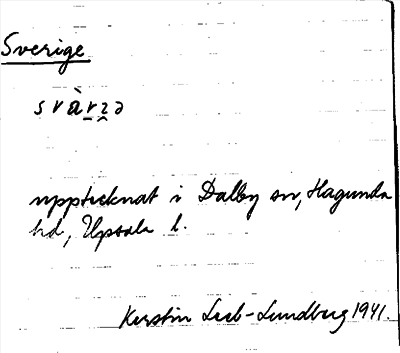 Sverige
svàrzə
upptecknat i Dalby sn, Hagunda
hd, Upsala l.
Kerstin Leeb-Lundberg 1941.